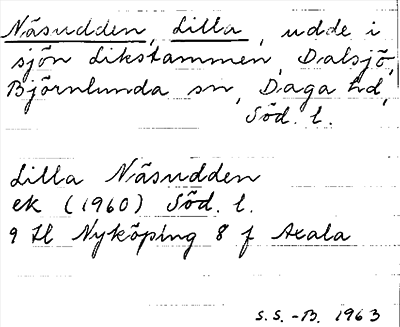 Näsudden, Lilla, udde i
sjön Likstammen, Dalsjö,
Björnlunda sn, Daga hd,
Söd. l.
Lilla Näsudden
ek (1960) Söd. l.
9 H Nyköping 8 f Axala
S.S.-B. 1963